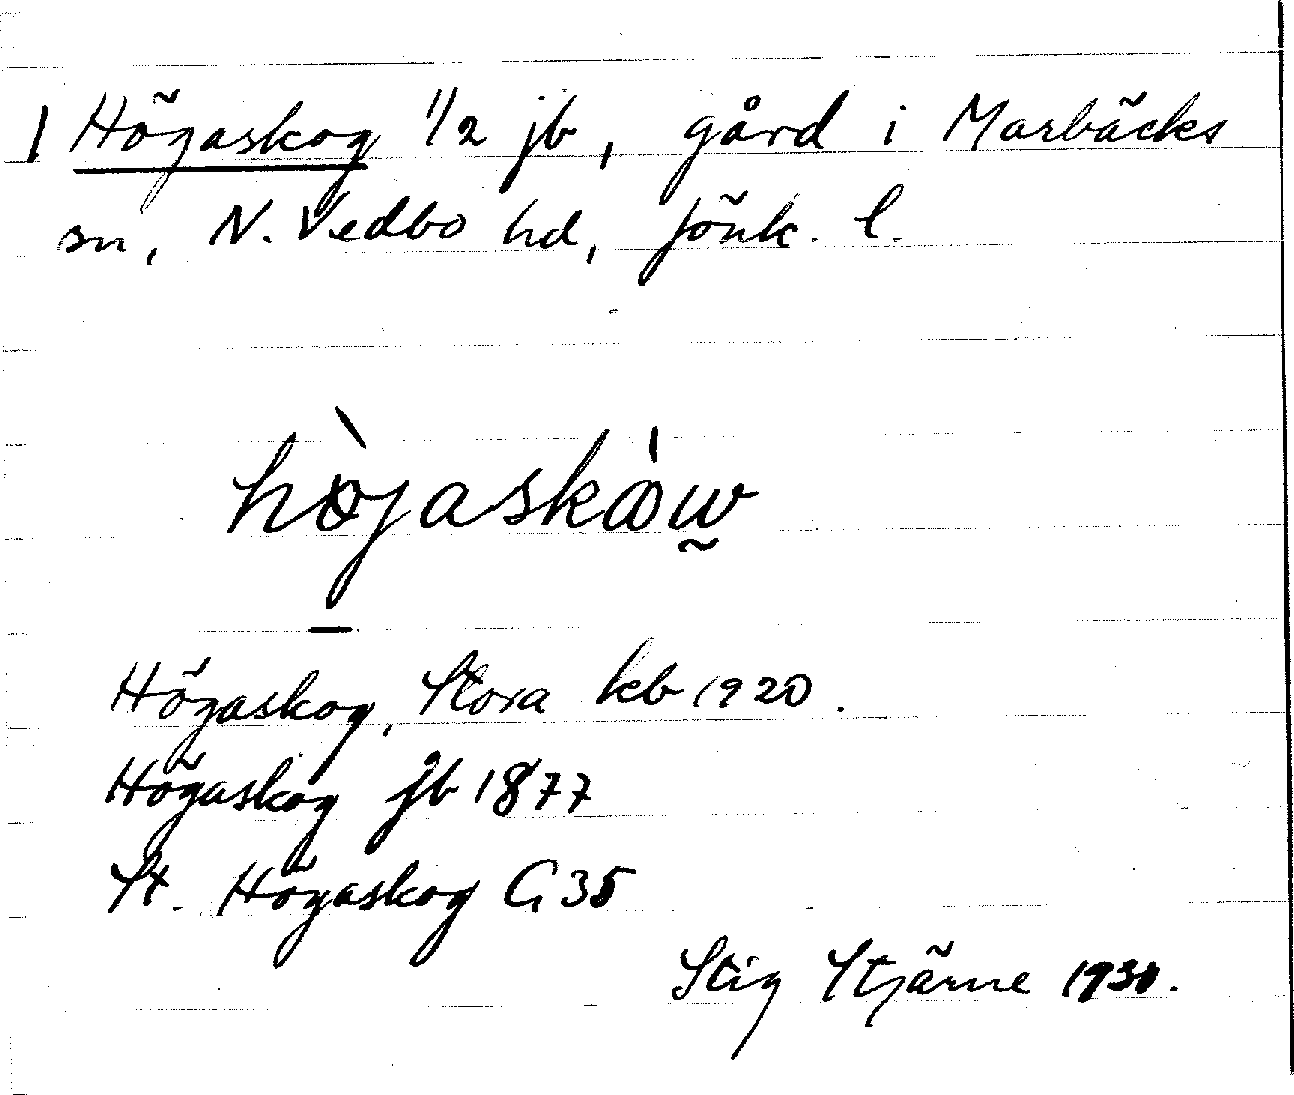 1 Högaskog 1/2 jb, gård i Marbäcks
sn, N. Vedbo hd, Jönk. l.
Högaskog, Stora kb 1920.
Högaskog jb 1877
St. Högaskog G 35
Stig Stjärne 1930.